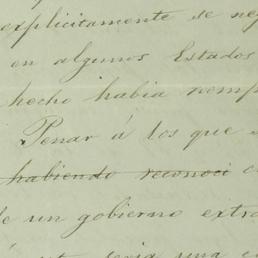 explicitamente se ne
en algunos Estados
hecho habia
Penar á los que
habiendo reconoci
de un gobierno extra
una